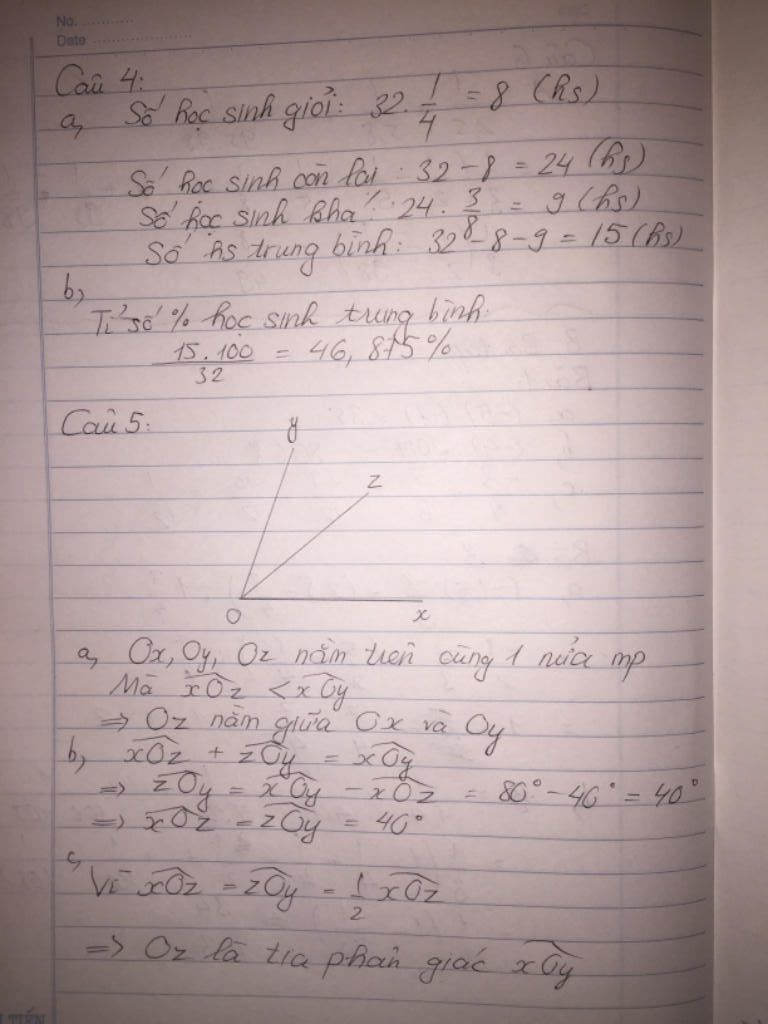 No. ............
Date .....................
Câu 4:
a, Số học sinh giỏi: 32 . 1/4 = 8 (hs)
Số học sinh còn lại : 32 - 8 = 24 (hs)
Số học sinh khá : 24 . 3/8 = 9 (hs)
Số hs trung bình: 32 - 8 - 9 = 15 (hs)
b,
Tỉ số % học sinh trung bình.
15 . 100 / 32 = 46, 875 %
Câu 5:
y
z
O x
a, Ox, Oy, Oz nằm trên cùng 1 nửa mp
Mà xOz < xOy
=> Oz nằm giữa Ox và Oy
b, xOz + zOy = xOy
=> zOy = xOy - xOz = 80° - 40° = 40°
=> xOz = zOy = 40°
c,
Vì xOz = zOy = 1/2 xOz
=> Oz là tia phân giác xOy
TIẾN